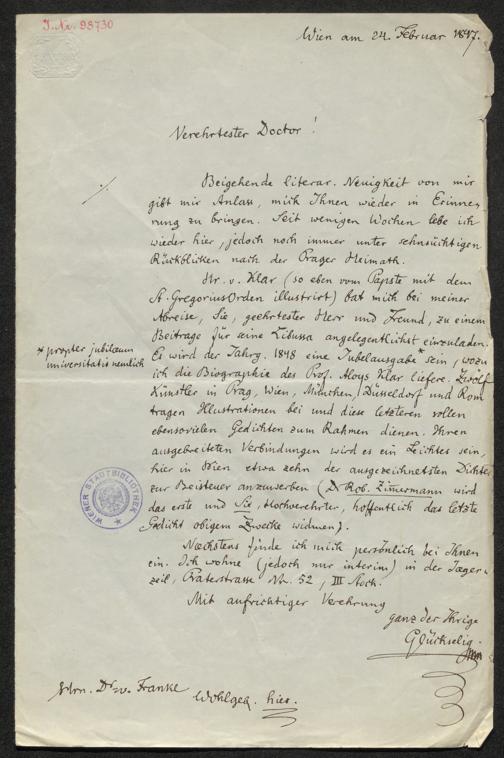 I.N. 98730
Wien am 24. Februar 1847.
Verehrtester Doctor!
Beigehende literar. Neuigkeit von mir
gibt mir Anlass, mich Ihnen wieder in Erinne-
rung zu bringen. Seit wenigen Wochen lebe ich
wieder hier, jedoch noch immer unter sehnsüchtigen
Rückblicken nach der Prager Heimath.
Hr. v. Klar (so eben vom Papste mit dem
St. GregoriusOrden illustrirt) bat mich bei meiner
Abreise, Sie, geehrtester Herr und Freund, zu einem
Beitrage für seine Libussa angelegentlichst einzuladen.
Es wird der Jahrg. 1848 eine Jubelausgabe* sein, wozu
* propter jubilæum
universitatis nemlich
ich die Biographie des Prof. Aloys Klar liefere. Zwölf
Künstler in Prag, Wien, München, Düsseldorf und Rom
tragen Illustrationen bei und diese letzteren sollen
ebensovielen Gedichten zum Rahmen dienen. Ihren
ausgebreiteten Verbindungen wird es ein Leichtes sein,
hier in Wien etwa zehn der ausgezeichnetsten Dichter
zur Beisteuer anzuwerben (Dr Rob. Zimermann wird
das erste und Sie, Hochverehrter, hoffentlich das letzte
Gedicht obigem Zwecke widmen).
Næchstens finde ich mich persönlich bei Ihnen
ein. Ich wohne (jedoch nur interim) in der Jæger-
zeil, Praterstrasse No. 52, III Stock.
Mit aufrichtiger Verehrung
ganz der Ihrige
Glückselig.
WIENER STADTBIBLIOTHEK
Hrn. Dr v. Frankl
Wohlgeb. hier.